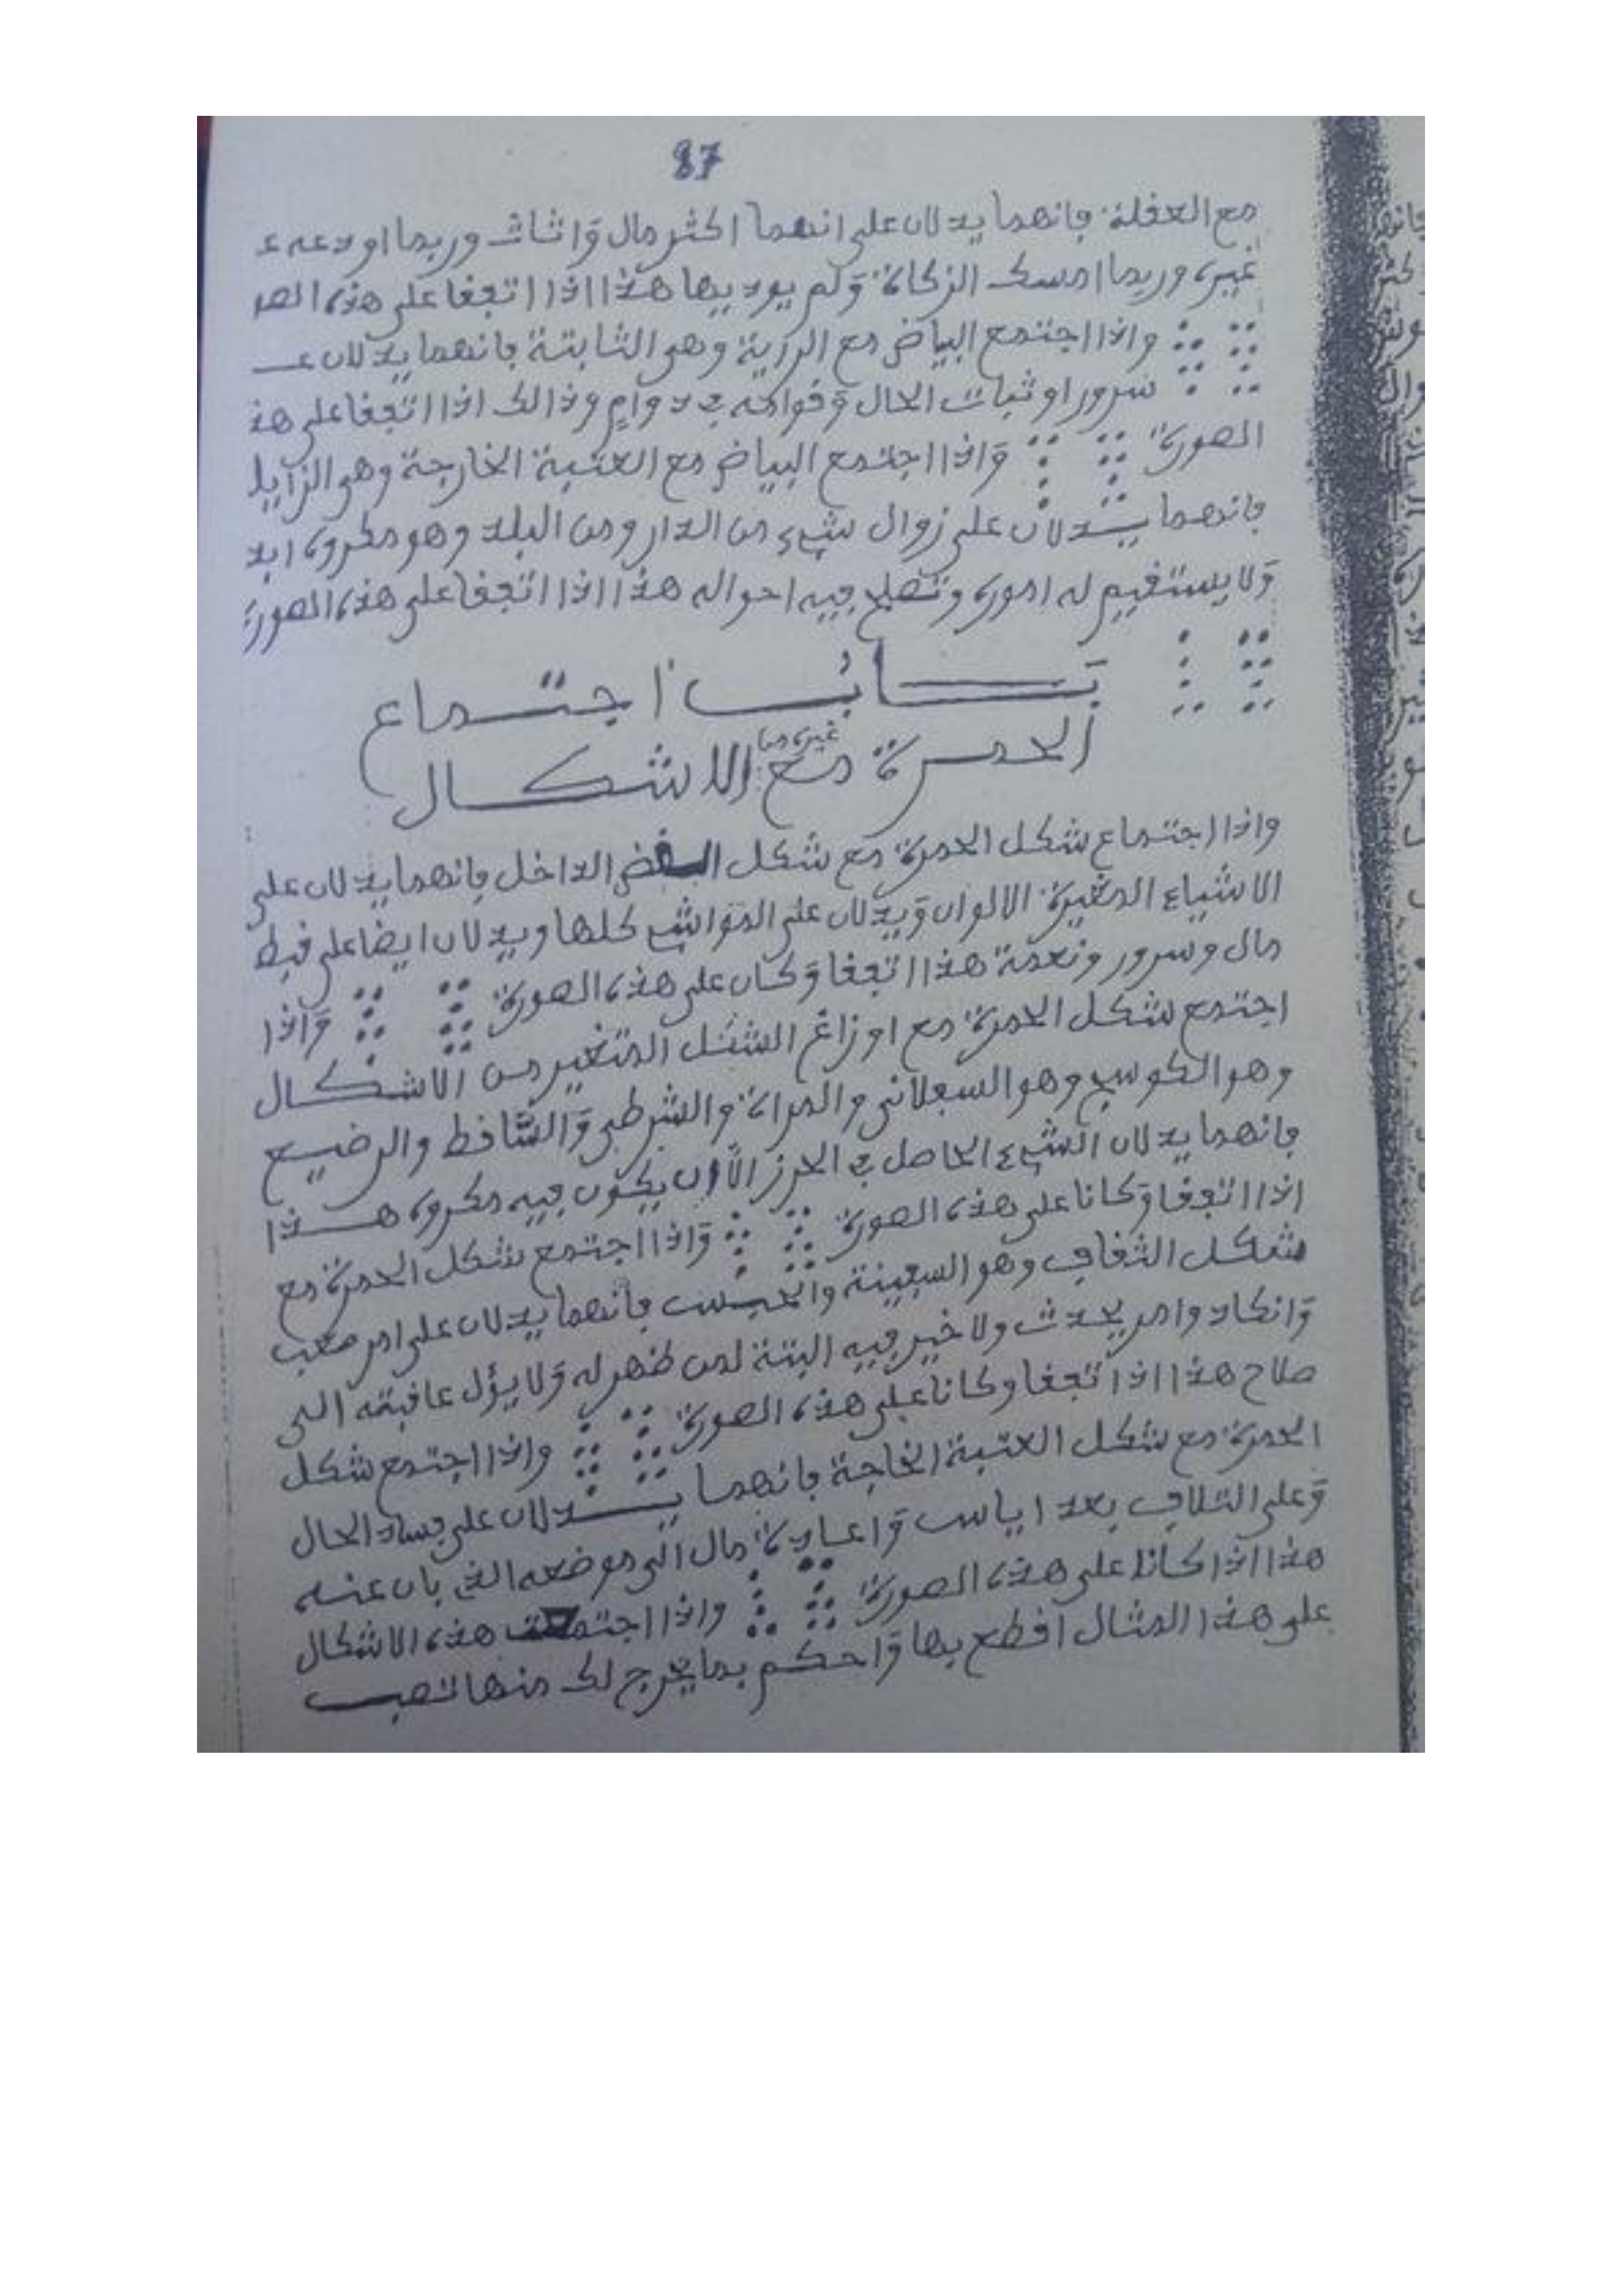 87
مع العقلة فانهما يدلان على انهما اكثر مال واثاث وربما اودعه ع
غيره وربما امسك الزكاة ولم يوديها هذا اذا اتفقا على هذه الصر
واذا اجتمع البياض مع الرزية وهي الثابتة فانهما يدلان عـ
سرور او ثبات الحال وقوامه في دوام وذالك اذا اتفقا على هذ
الصورة واذا اجتمع البياض مع العتبة الخارجة وهو الزايد
فانهما يدلان على زوال شيء من الدار ومن البلد وهو مكروه ابد
ولا يستقيم له اموره وتصلح فيه احواله هذا اذا اتفقا على هذه الصورة
باب اجتماع
الحمرة مع غيره من الاشكال
واذا اجتماع شكل الحمرة مع شكل القبض الداخل فانهما يدلان على
الاشياء المغيرة الالوان ويدلان على المواشي كلها ويدلان ايضا على قبط
مال وسرور ونعمة هذا اتفقا وكان على هذه الصورة واذا
اجتمع شكل الحمرة مع اوزاغ الشكل المتغير من الاشكال
وهو الكوسج وهو السعلاني والمراة والشرطي والساقط والرضيع
فانهما يدلان الشيء الحاصل في الحرز الا ان يكون فيه مكروه هذا
اذا اتفقا وكانا على هذه الصورة واذا اجتمع شكل الحمرة مع
شكل الثقاف وهو السفينة والحبس فانهما يدلان على امر صعب
وانكاد وامر يحدث ولا خير فيه البتة لمن ظهر له ولا يؤل عاقبته الى
صلاح هذا اذا اتفقا وكانا على هذه الصورة واذا اجتمع شكل
الحمرة مع شكل العتبة الخاجة فانهما يدلان على فساد الحال
وعلى التلاف بعد اياس واعادة مال الى موضعه الذي بان عنه
هذا اذا كانا على هذه الصورة واذا اجتمعت هذه الاشكال
على هذا المثال اقطع بها واحكم بما يخرج لك منها تصب